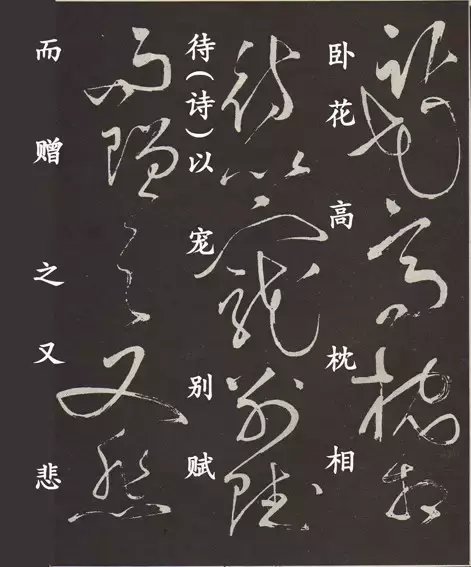 卧花高枕相
待(诗)以宠别赋
而赠之又悲